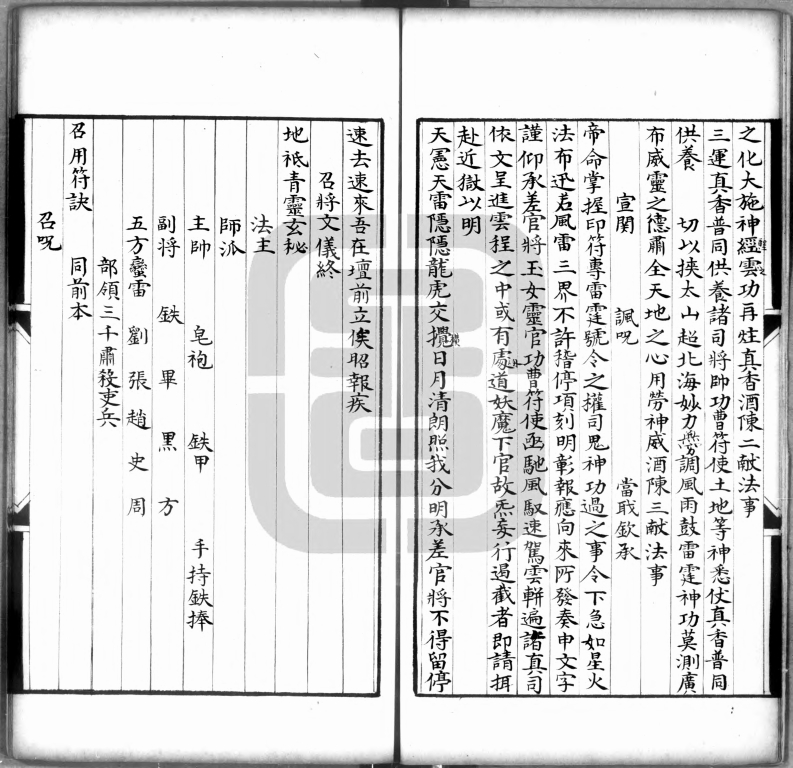 之化大施神經雲功再炷真香酒陳二献法事
三運真香普同供養諸司將帥功曹符使土地等神悉仗真香普同
供養　切以挾太山超北海妙力無分調風雨鼓雷霆神功莫測廣
布威靈之德肅全天地之心用勞神威酒陳三献法事
宣関　諷呪　當戢欽承
帝命掌握印符專雷霆號令之權司鬼神功過之事令下急如星火
法布迅若風雷三界不許稽停項刻明彰報應向來所發奏申文字
謹仰承差官將玉女靈官功曹符使亟馳風馭速駕雲軿遍諸真司
依文呈進雲程之中或有處道妖魔下官故炁妄行遏截者即請掯
赴近獄以明
天憲天雷隱隱龍虎交攪日月清朗照我分明承差官將不得留停
速去速來吾在壇前立俟昭報疾
召將文儀終
地祇青靈玄秘
法主
師派
主帥　皂袍　鉄甲　手持鉄捧
副將　鉄　畢　黑　方
五方蠻雷　劉　張　趙　史　周
部領三千肅殺吏兵
召用符訣　同前本
召呪